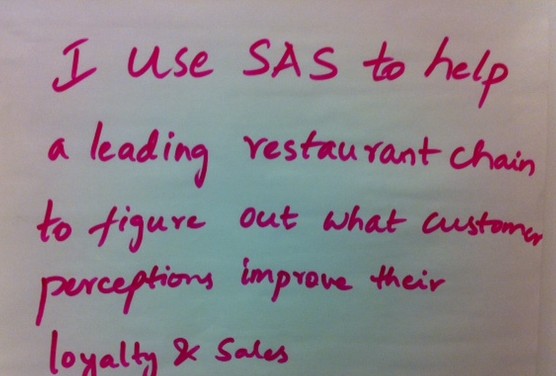 I use SAS to help
a leading restaurant chain
to figure out what customer
perceptions improve their
loyalty & Sales